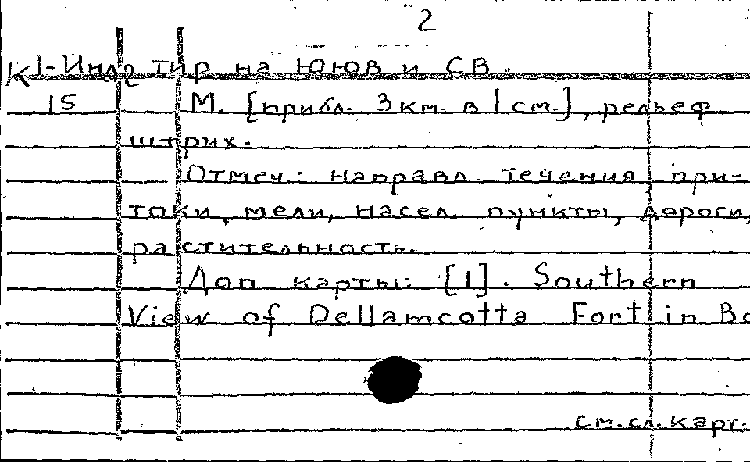 2
К 1-Инд2 тир на ЮЮВ и СВ.
15 М. [прибл. 3 км. в 1 см.], рельеф
штрих.
Отмеч: направл. течения, при-
токи, мели, насел. пункты, дороги,
растительность.
Доп карты: [1]. Southern
View of Dellamcotta Fort in Bo
см. сл. карт.